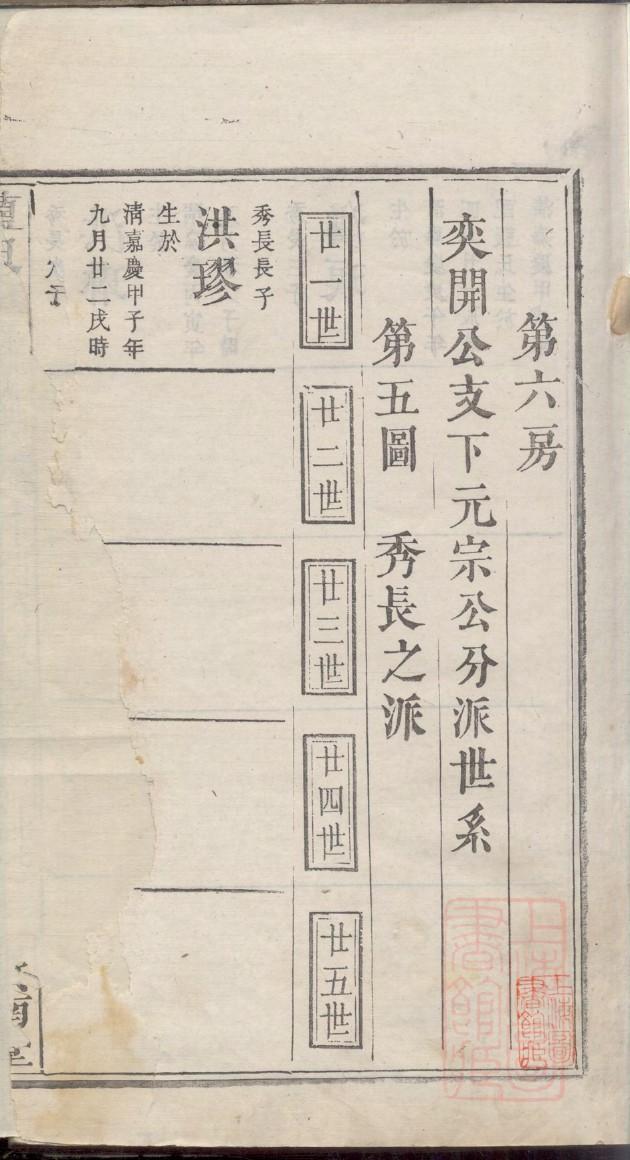 第六房
奕開公支下元宗公分派世系
第五圖　秀長之派
廿一世
廿二世
廿三世
廿四世
廿五世
秀長長子
洪璆
生於
清嘉慶甲子年
九月廿二戌時
上海圖
書館藏